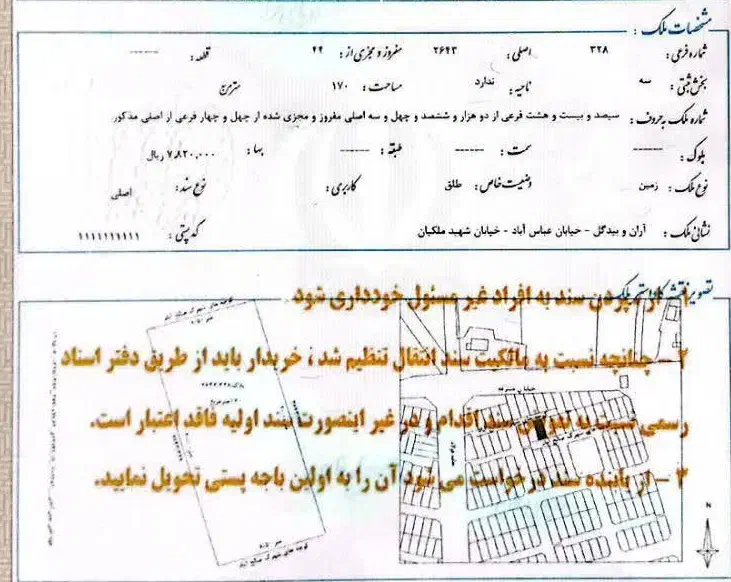 مشخصات ملک :
شماره فرعی : ۳۲۸ اصلی : ۲۶۴۳ مفروز و مجزی از : ۴۴ قطعه : -----
بخش ثبتی : سه ناحیه : ندارد مساحت : ۱۷۰ مترمربع
شماره ملک به حروف : سیصد و بیست و هشت فرعی از دو هزار و ششصد و چهل و سه اصلی مفروز و مجزی شده از چهل و چهار فرعی از اصلی مذکور
بلوک : ----- سمت : ----- طبقه : ----- بها : ۷,۸۲۰,۰۰۰ ریال
نوع ملک : زمین وضعیت خاص : طلق کاربری : نوع سند : اصلی
نشانی ملک : آران و بیدگل - خیابان عباس آباد - خیابان شهید ملکیان کدپستی : ۱۱۱۱۱۱۱۱۱۱
تصویر نقشه کاداستر ملک
۱ - از سپردن سند به افراد غیر مسئول خودداری شود
۲ - چنانچه نسبت به مالکیت سند انتقال تنظیم شد ، خریدار باید از طریق دفتر اسناد
رسمی نسبت به تعویض سند اقدام و در غیر اینصورت سند اولیه فاقد اعتبار است.
۳ - از یابنده سند درخواست می شود آن را به اولین باجه پستی تحویل نمایید.
N